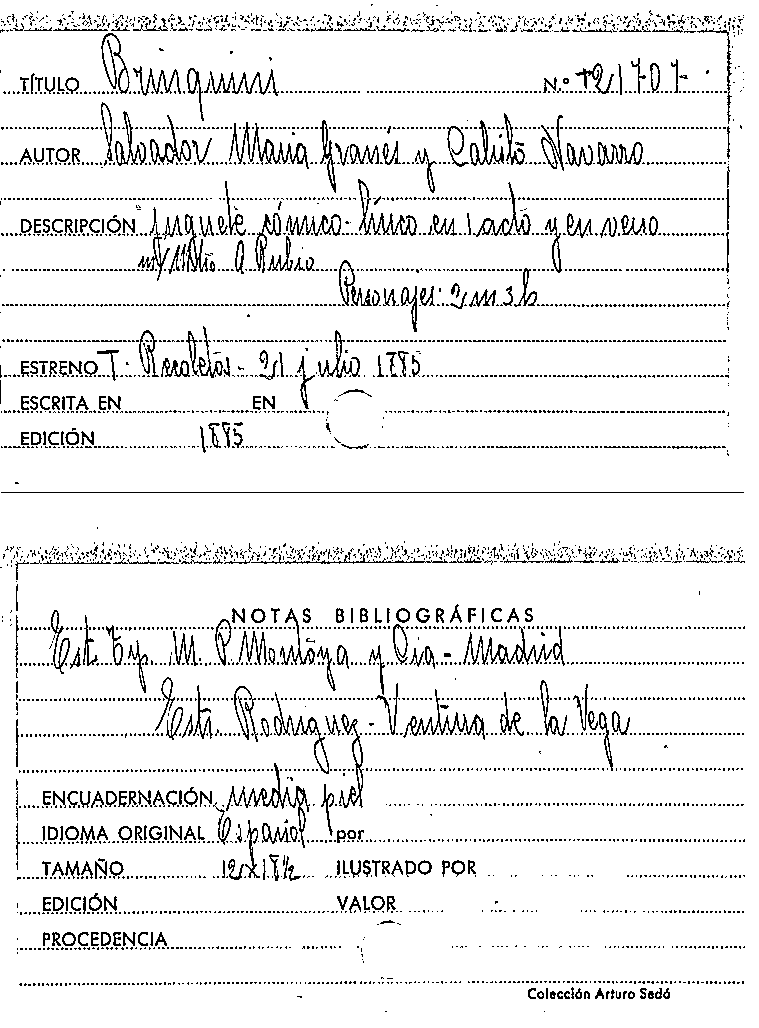 TÍTULO Brinquini N.º 721707-
AUTOR Salvador Maria Granés y Calisto Navarro
DESCRIPCIÓN "juguete cómico-lírico en 1 acto y en verso
A Rubio
Personajes: 2 m 3 h
ESTRENO T. Recoletos - 21 julio 1885
ESCRITA EN EN
EDICIÓN 1885
NOTAS BIBLIOGRÁFICAS
Est. Typ. M. P. Montoya y Cia - Madrid
Estr. Rodriguez - Ventura de la Vega
ENCUADERNACIÓN media piel
IDIOMA ORIGINAL Español por
TAMAÑO 12 x 18½ ILUSTRADO POR
EDICIÓN VALOR
PROCEDENCIA
Colección Arturo Sedó